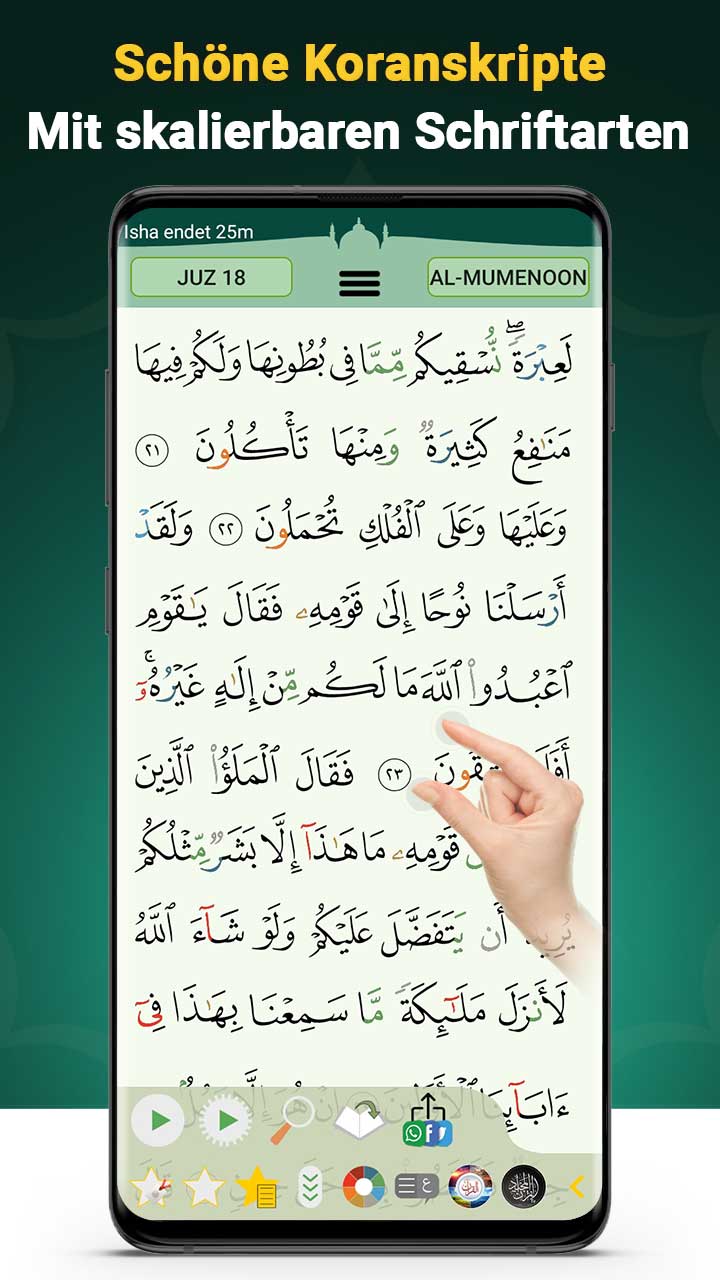 Schöne Koranskripte
Mit skalierbaren Schriftarten
Isha endet 25m
JUZ 18
AL-MUMENOON
لَعِبْرَةً ۖ نُّسْقِيكُم مِّمَّا فِى بُطُونِهَا وَلَكُمْ فِيهَا
مَنَـٰفِعُ كَثِيرَةٌ وَمِنْهَا تَأْكُلُونَ ٢١
وَعَلَيْهَا وَعَلَى ٱلْفُلْكِ تُحْمَلُونَ ٢٢ وَلَقَدْ
أَرْسَلْنَا نُوحًا إِلَىٰ قَوْمِهِۦ فَقَالَ يَـٰقَوْمِ
ٱعْبُدُوا۟ ٱللَّهَ مَا لَكُم مِّنْ إِلَـٰهٍ غَيْرُهُۥٓ ۚ
٢٣ فَقَالَ ٱلْمَلَؤُا۟ ٱلَّذِينَ
قَوْمِهِۦ مَا هَـٰذَآ إِلَّا بَشَرٌ مِّثْلُكُمْ
يُرِيدُ أَن يَتَفَضَّلَ عَلَيْكُمْ وَلَوْ شَآءَ ٱللَّهُ
لَأَنزَلَ مَلَـٰٓئِكَةً مَّا سَمِعْنَا بِهَـٰذَا فِىٓ
ءَابَآئِنَا ٱلْأَوَّلِينَ